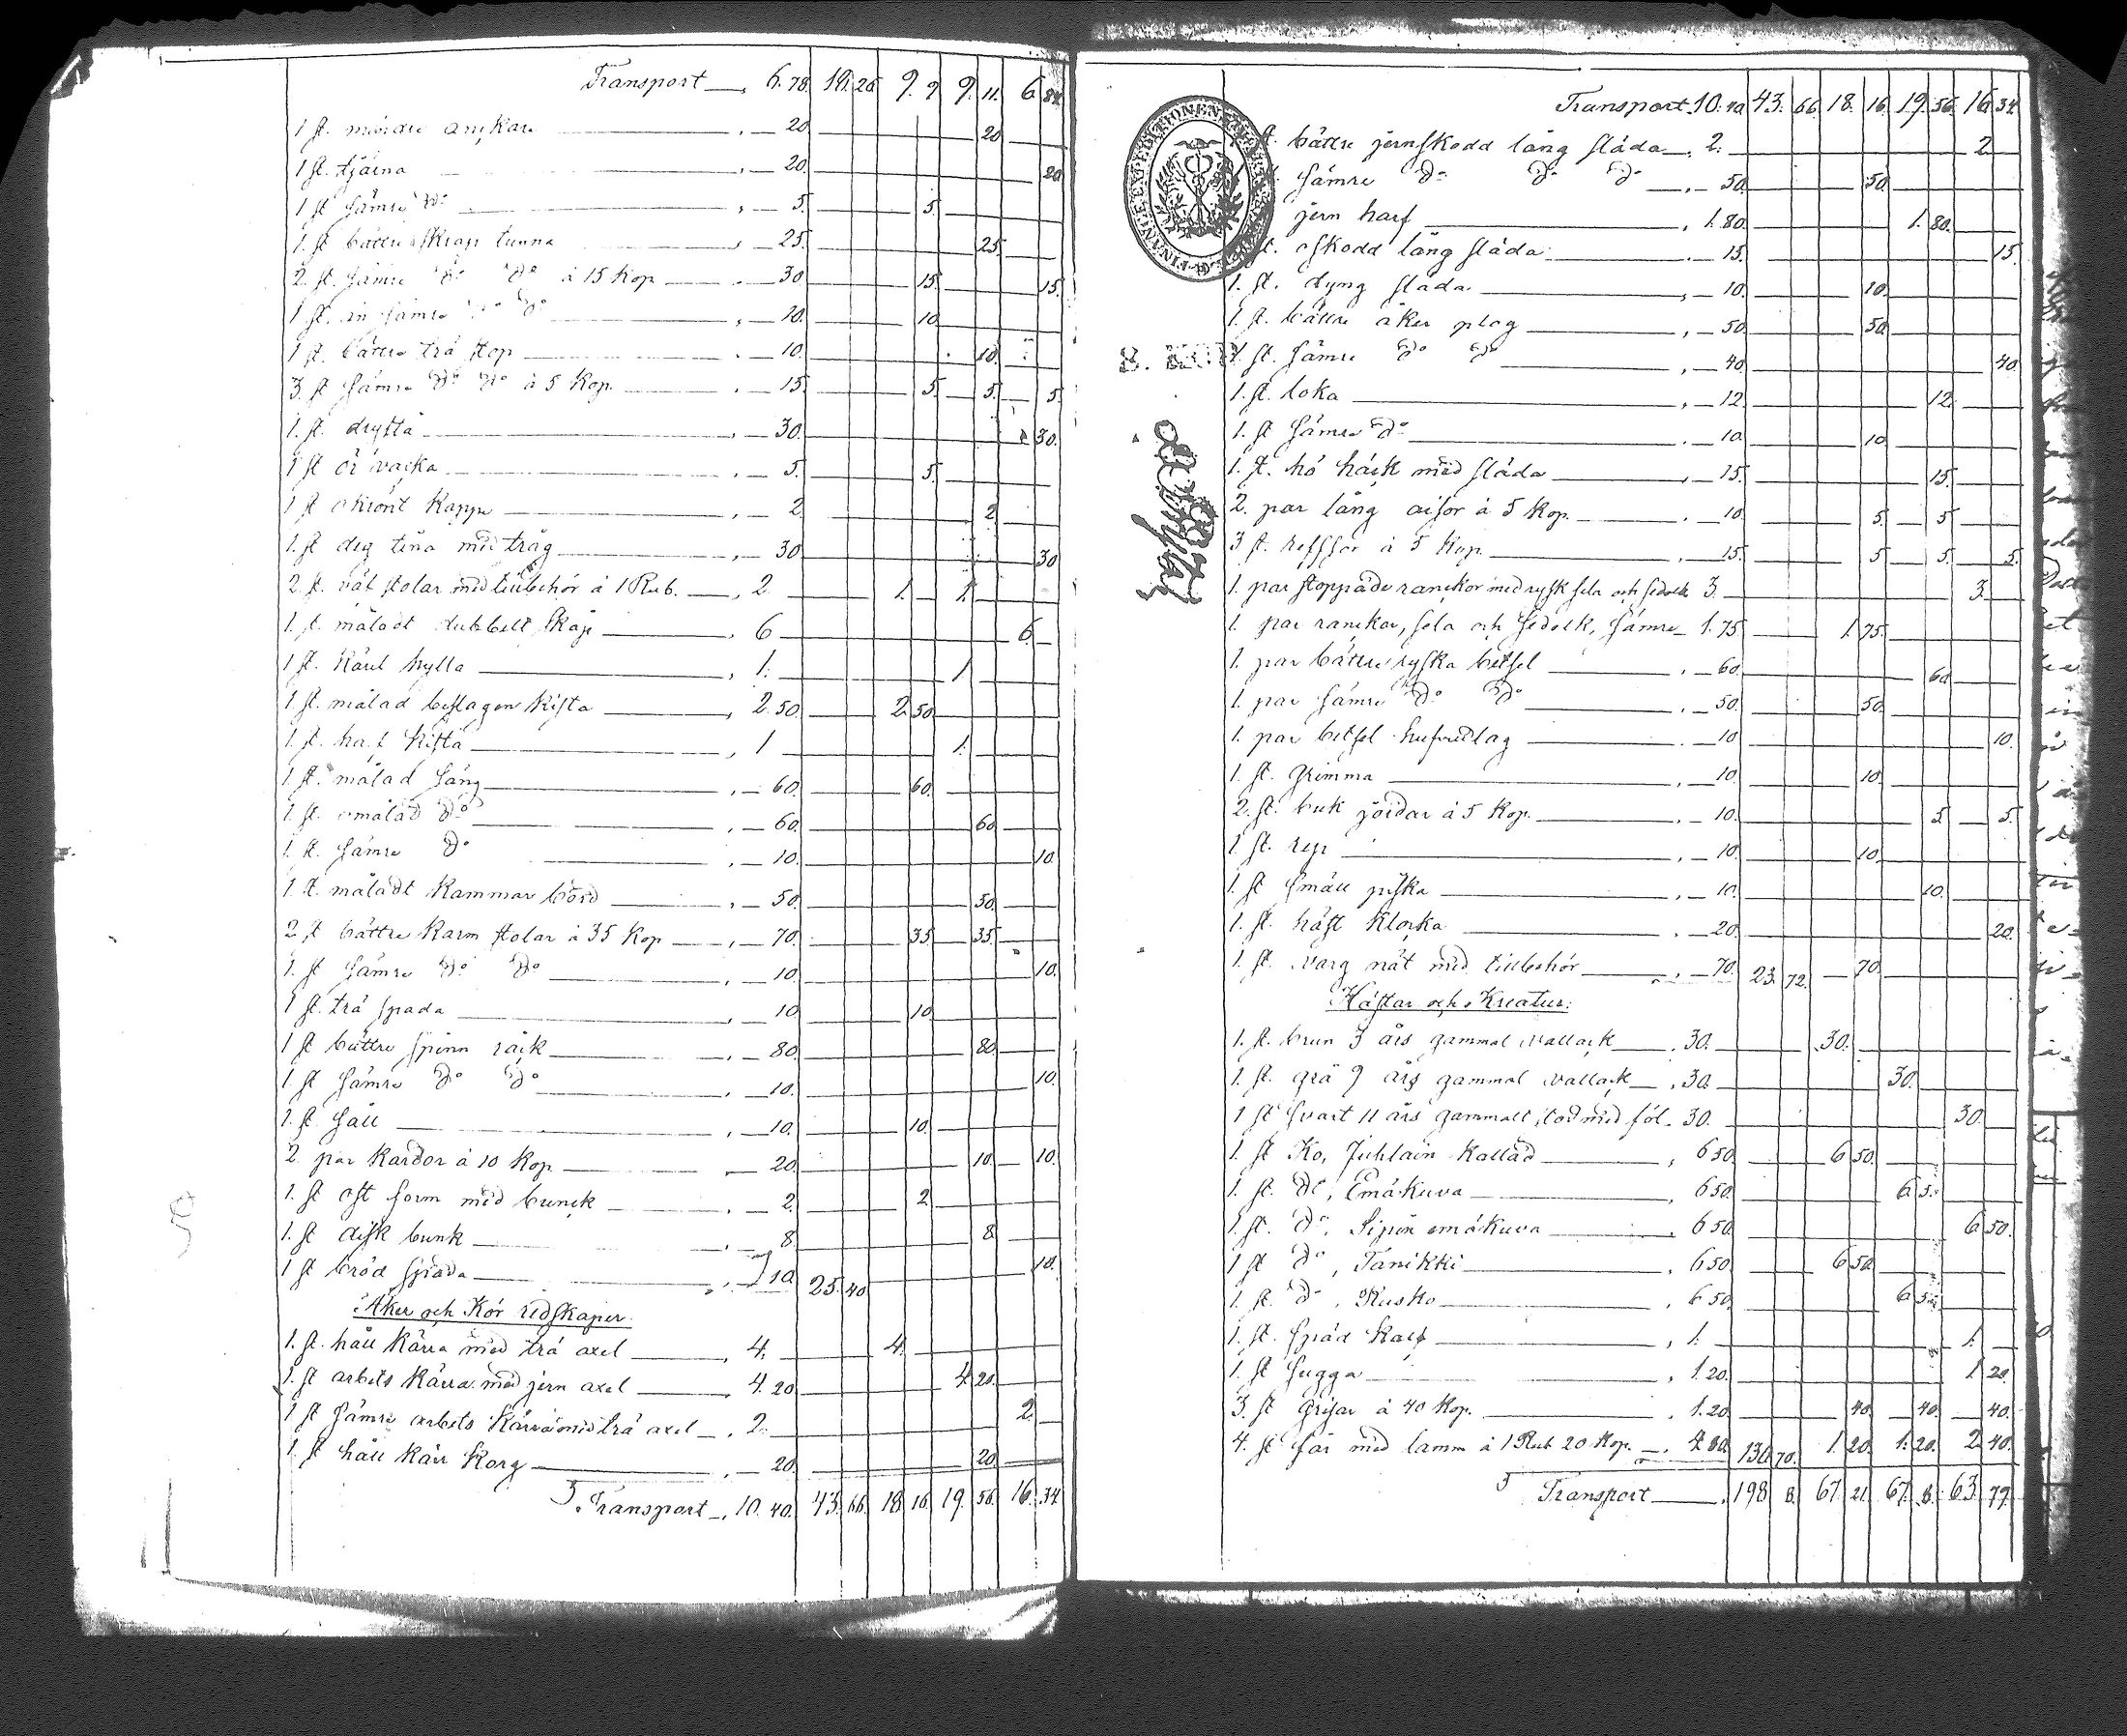 Transport — 6. 78. 18. 26 9. 9 9. 11. 6. 84.
1 st. mindre anckare — 20. 20
1 st. tjärna — 20. 20
1 st sämre do — 5. 5.
1. st bättre skrap tunna — 25. 25.
2. st. sämre do do à 15 Kop — 30 15. 15.
1 st. än sämre do do — 10. 10
1 st. bättre trä stop — 10. 10.
3 st sämre do do à 5 Kop. — 15. 5. 5. 5.
1. st. drysta — 30. 30.
1 st ör vacka — 5. 5.
1 st okrönt Kappe — 2 2
1. st deg tina med tråg — 30 30
2. st. väf stolar med tillbehör à 1 Rub. — 2. 1. 1.
1. st. måladt dubbelt skåp — 6 6.
1 st. Käril hylla — 1. 1
1 st. målad beslagen Kista — 2. 50. 2 50.
1. st. Kista — 1 1.
1 st. målad säng — 60. 60.
1. st. omålad do — 60. 60
1. st. sämre do — 10. 10
1. st. måladt Kammar bord — 50. 50.
2. st bättre Karm stolar à 35 Kop — 70. 35. 35.
1. st sämre do do — 10. 10.
1 st. trä spada — 10 10
1 st bättre spinn råck — 80. 80.
1 st sämre do do — 10. 10.
1. st såll — 10. 10.
2. par Kardor à 10 Kop — 20. 10. 10.
1. st ost form med bunck — 2. 2
1. st disk bunk — 8. 8
1 st bröd spada — 10. 25. 40 10.
Åker och Kör redskaper.
1. st. håll Kärra med trä axel — 4. 4.
1. st arbets Kärra med jern axel — 4. 20 4. 20.
1 st sämre arbets Kärra med trä axel — 2. 2.
1. st håll Kärr Korg — 20. 20
Transport — 10. 40. 43. 66. 18. 16. 19. 56. 16. 34
FINANCE EXPEDITIONEN
Transport. 10. 40 43. 66. 18. 16. 19. 56. 16. 34.
st. bättre jernskodd lång släda — 2. 2
sämre do do do — 50. 50.
jern harf — 1. 80. 1. 80.
st. oskodd lång släda — 15. 15.
1. st. dyng släda — 10. 10.
1. st. bättre åker plog — 50. 50.
1 st. sämre do do — 40 40.
1. st. loka — 12. 12.
1. st sämre do — 10. 10
1. st. hö häck med släda — 15. 15.
2. par lång aisor à 5 Kop. — 10. 5. 5.
3 st. reffsor à 5 Kop — 15. 5 5. 5.
1. par stoppade ranckor med rysk sela och sedolk 3. 3.
1. par ranckor, sela och sedolk, sämre — 1. 75 1. 75.
1. par bättre ryska betsel — 60. 60
1. par sämre do do — 50. 50.
1. par betsel hufvudlag — 10 10.
1. st. grimma — 10. 10.
2. st. buk jördar à 5 Kop. — 10. 5 5.
1 st. rep — 10. 10.
1. st smäll piska — 10. 10.
1. st. häst Klocka — 20. 20.
1. st. varg nät med tillbehör — 70. 23. 72. 70.
Hästar och Kreatur:
1. st. brun 3 års gammal vallack — 30. 30.
1. st. grå 9 års gammal vallack — 30. 30.
1 st svart 11 års gammalt sto med föl. 30. 30.
1. st Ko, Juhlain Kallad — 6 50. 6 50.
1. st. do, Emäkuva — 6 50. 6 5
1. st. do, Sipin emäkuva — 6 50. 6 50.
1 st do, Tänikki — 6 50. 6 50.
1. st. do, Rusko — 6 50. 6 5
1. st. späd Kalf — 1. 1.
1. st sugga — 1. 20. 1 20.
3. st grisar à 40 Kop. — 1. 20. 40. 40. 40.
4. st får med lamm à 1 Rub 20 Kop. — 4. 80. 130. 70. 1. 20. 1. 20. 2. 40.
Transport — 198 8. 67. 21. 67. 8. 63. 77.